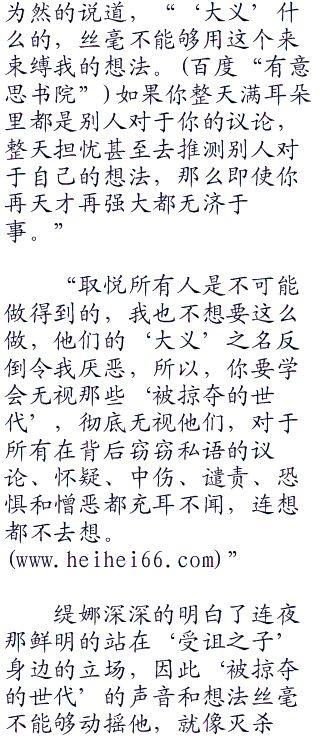 为然的说道，“‘大义’什
么的，丝毫不能够用这个来
束缚我的想法。(百度“有意
思书院”)如果你整天满耳朵
里都是别人对于你的议论，
整天担忧甚至去推测别人对
于自己的想法，那么即使你
再天才再强大都无济于
事。”
“取悦所有人是不可能
做得到的，我也不想要这么
做，他们的‘大义’之名反
倒令我厌恶，所以，你要学
会无视那些‘被掠夺的世
代’，彻底无视他们，对于
所有在背后窃窃私语的议
论、怀疑、中伤、谴责、恐
惧和憎恶都充耳不闻，连想
都不去想。
(www.heihei66.com)”
缇娜深深的明白了连夜
那鲜明的站在‘受诅之子’
身边的立场，因此‘被掠夺
的世代’的声音和想法丝毫
不能够动摇他，就像灭杀